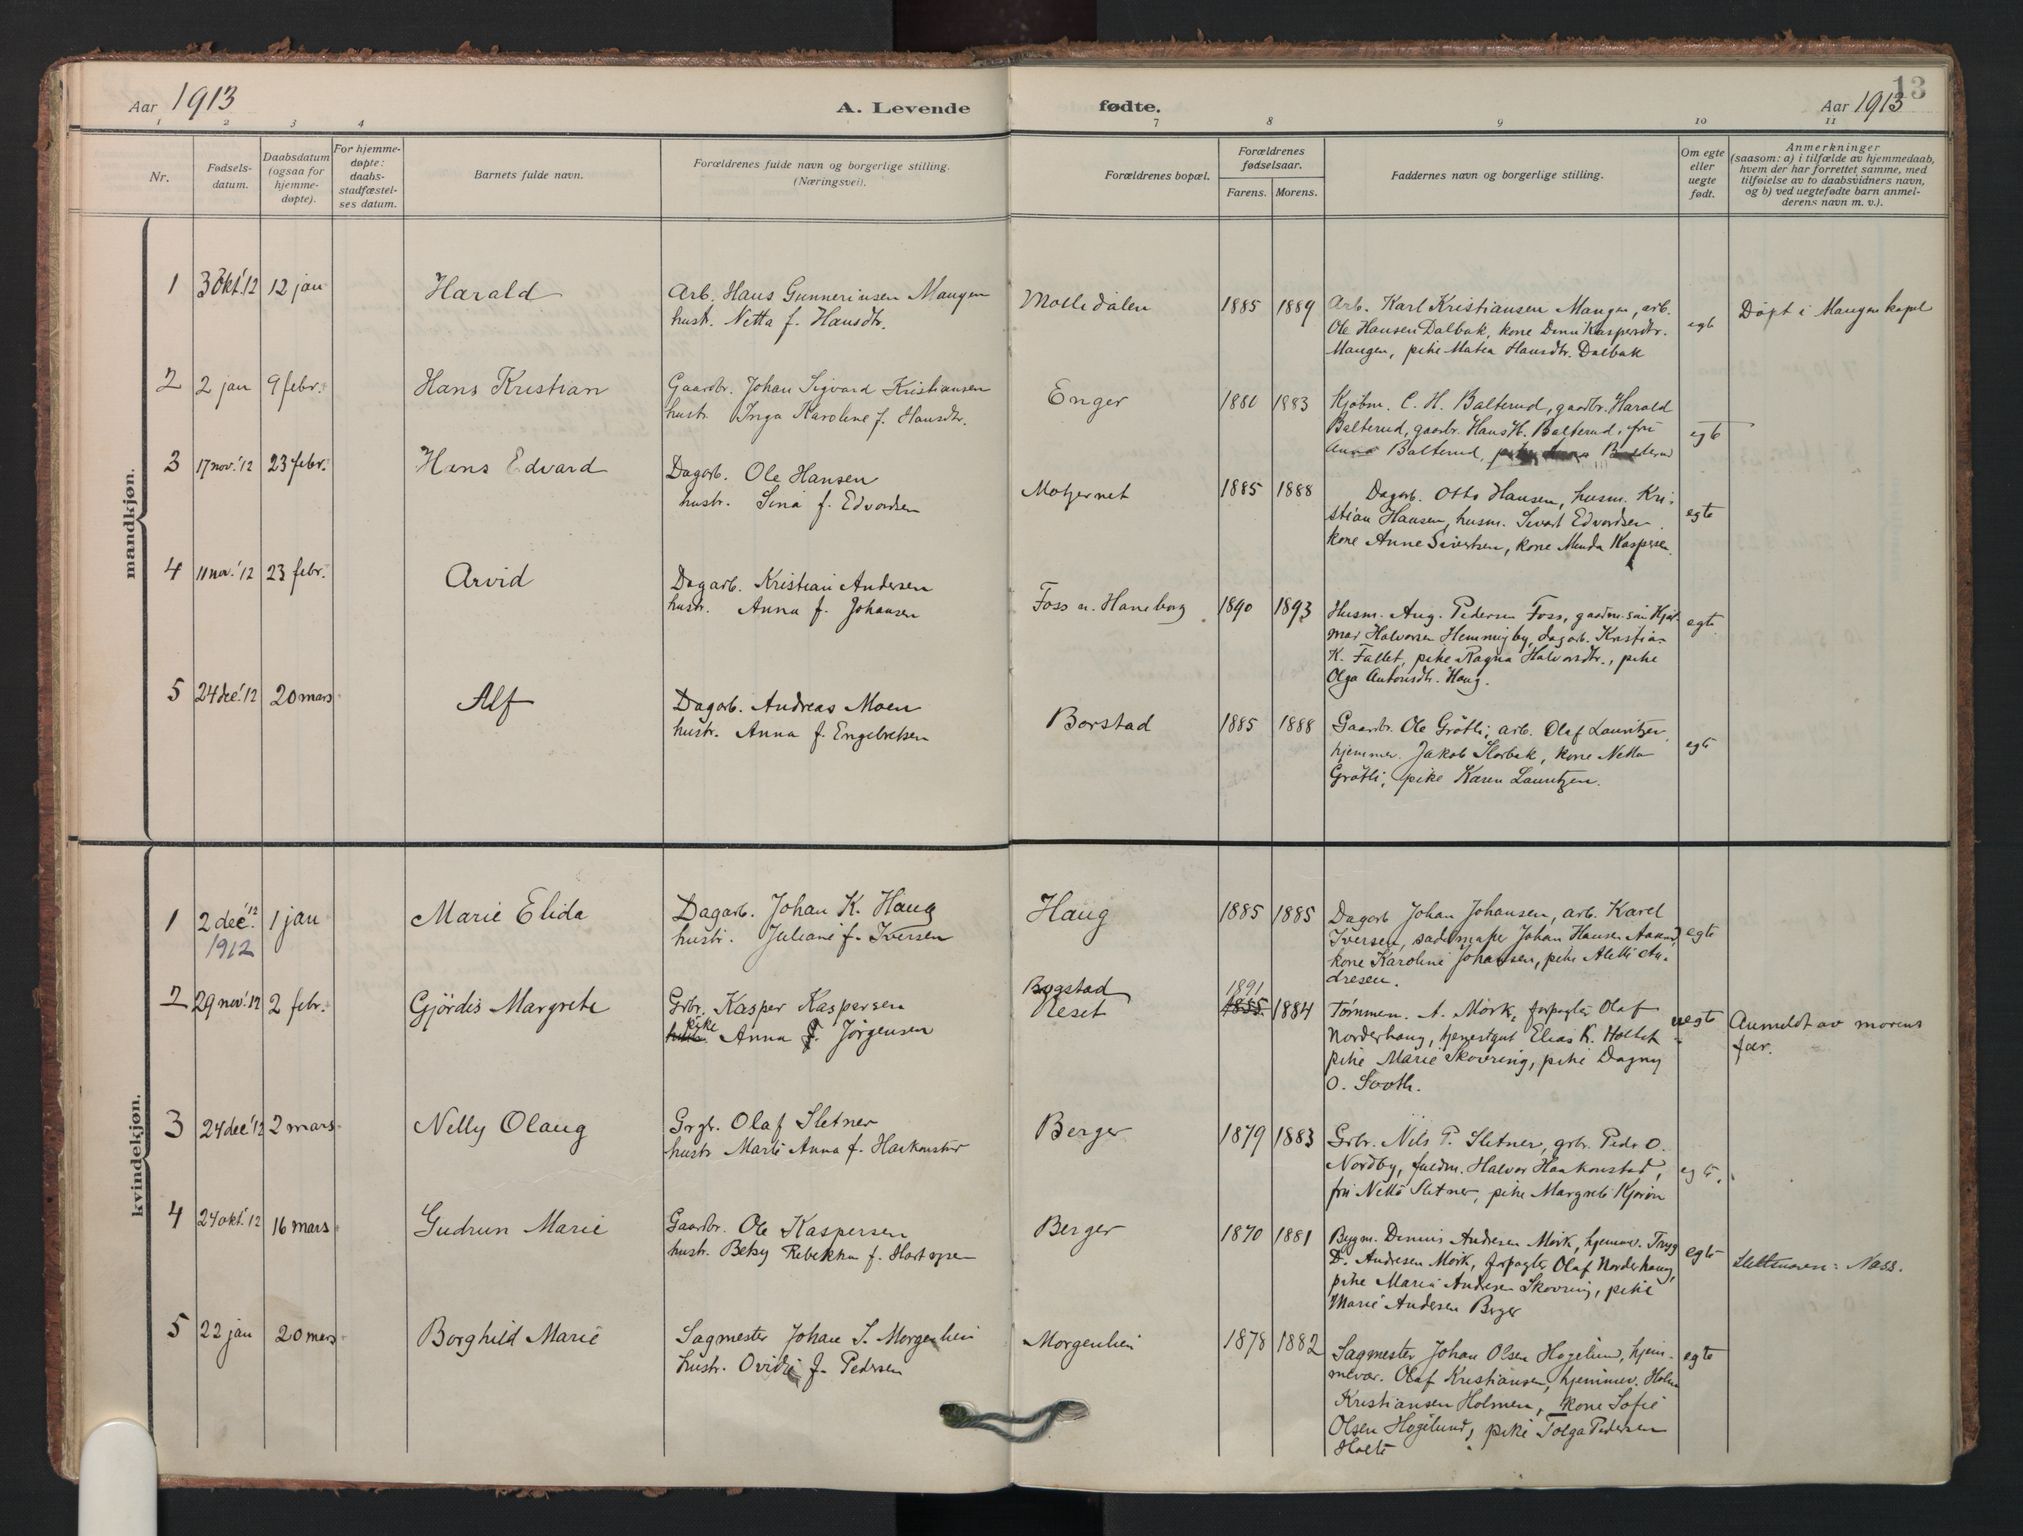 13
Aar 1913
A. Levende
fødte.
Aar 1913
1 2 3 4 7 8 9 10 11
Nr.
Fødsels-
datum.
Daabsdatum
(ogsaa for
hjemme-
døpte).
For hjemme-
døpte:
daabs-
stadfæstel-
ses datum.
Barnets fulde navn.
Forældrenes fulde navn og borgerlige stilling.
(Næringsvei).
Forældrenes bopæl.
Forældrenes
fødselsaar.
Farens. Morens.
Faddernes navn og borgerlige stilling.
Om egte
eller
uegte
født.
Anmerkninger
(saasom: a) i tilfælde av hjemmedaab,
hvem der har forrettet samme, med
tilføielse av to daabsvidners navn,
og b) ved uegtefødte barn anmel-
derens navn m. v.).
mandkjøn.
1
3 Okt. '12
12 jan
Harald
Arb. Hans Gunneriusen Mangen
hustr. Netta f. Hansdtr.
1885
1889
Arb. Karl Kristiansen Mangen, arb.
Ole Hansen Dalbak, kone Kaspersdtr.
Mangen, pike Matea Hansdtr. Dalbak
egte
Døpt i Mangen kapel
2
2 jan
9 febr.
Hans Kristian
Gaardbr. Johan Sigvard Kristiansen
hustr. Inga Karoline f. Hansdtr.
Enger
1880
1883
Kjøbm. C. H. Balterud, gaardbr. Harald
Balterud, gaardbr. Hans H. Balterud, fru
Anna Balterud,
egte
3
17 nov. '12
23 febr.
Hans Edvard
Dagarb. Ole Hansen
hustr. Sina f. Edvardsen
Motjernet
1885
1888
Dagarb. Otto Hansen, husm. Kri-
stian Hansen, husm. Sivert Edvardsen
kone Anne Sivertsen, kone Minda Kaspersen.
egte
4
11 nov. '12
23 febr.
Arvid
Dagarb. Kristian Andersen
hustr. Anna f. Johansen
Foss u. Haneborg
1890
1893
Husm. Aug. Pedersen Foss, gaardm. søn Hjal-
mar Halvorsen Hemmingby, dagarb. Kristian
K. Fallet, pike Ragna Halvorsdtr., pike
Olga Antonsdtr. Haug.
egte
5
24 dec. '12
20 mars
Alf
Dagarb. Andreas Moen
hustr. Anna f. Engebretsen
Borstad
1885
1888
Gaardbr. Ole Grøtli, arb. Olaf Lauritzen
hjemmev. Jakob Storbak, kone Netta
Grøtli, pike Karen Lauritzen.
egte
kvindekjøn.
1
2 dec. '12
1912
1 jan
Marie Elida
Dagarb. Johan K. Haug
hustr. Juliane f. Iversen
Haug
1885
1885
Dagarb Johan Johansen, arb. Karel
Iversen, sadelmaker Johan Hansen
kone Karoline Johansen, pike Alette An-
dresen.
egte
2
29 nov. '12
2 febr.
Gjördis Margrete
Grbr. Kasper Kaspersen
pike Anna J. Jørgensen
Bogstad
Neset
1891
1885
1884
Tømmerm. A. Mørk, forpagter Olaf
Norderhaug, tjenestgut Elias K. Holtet
pike Marie Skovering, pike Dagny
O. Sooth.
uegte
Anmeldt av morens
far.
3
24 dec. '12
2 mars
Nelly Olaug
Grbr. Olaf Sletner
hustr Marte Anna f. Haakonstad
Berger
1879
1883
Grbr. Nils P. Sletner, grbr. Peder O.
Nordby, fuldm. Halvor Haakonstad,
fru Netta Sletner, pike Margrete Kjøron
egte.
4
24 okt. '12
16 mars
Gudrun Marie
Gaardbr. Ole Kaspersen
hustr. Betsy Rebekka f.
Berger
1870
1881
Bygm. Dennis Andresen Mørk, hjemmev. Tryg
D. Andresen Mørk, forpagter Olaf Norderhaug,
pike Marie Andresen Skovring, pike
Marie Andersen Berger
egte
Næss.
5
22 jan
20 mars
Borghild Marie
Sagmester Johan S. Morgenlien
hustr. Ovidie f. Pedersen
Morgenlien
1878
1882
Sagmester Johan Olsen Hogelund, hjem-
mevær. Olaf Kristiansen, hjemmev. Holm
Kristiansen Holmen, kone Sofie
Olsen Hogelund, pike Tolga Pedersen
Holte
egte